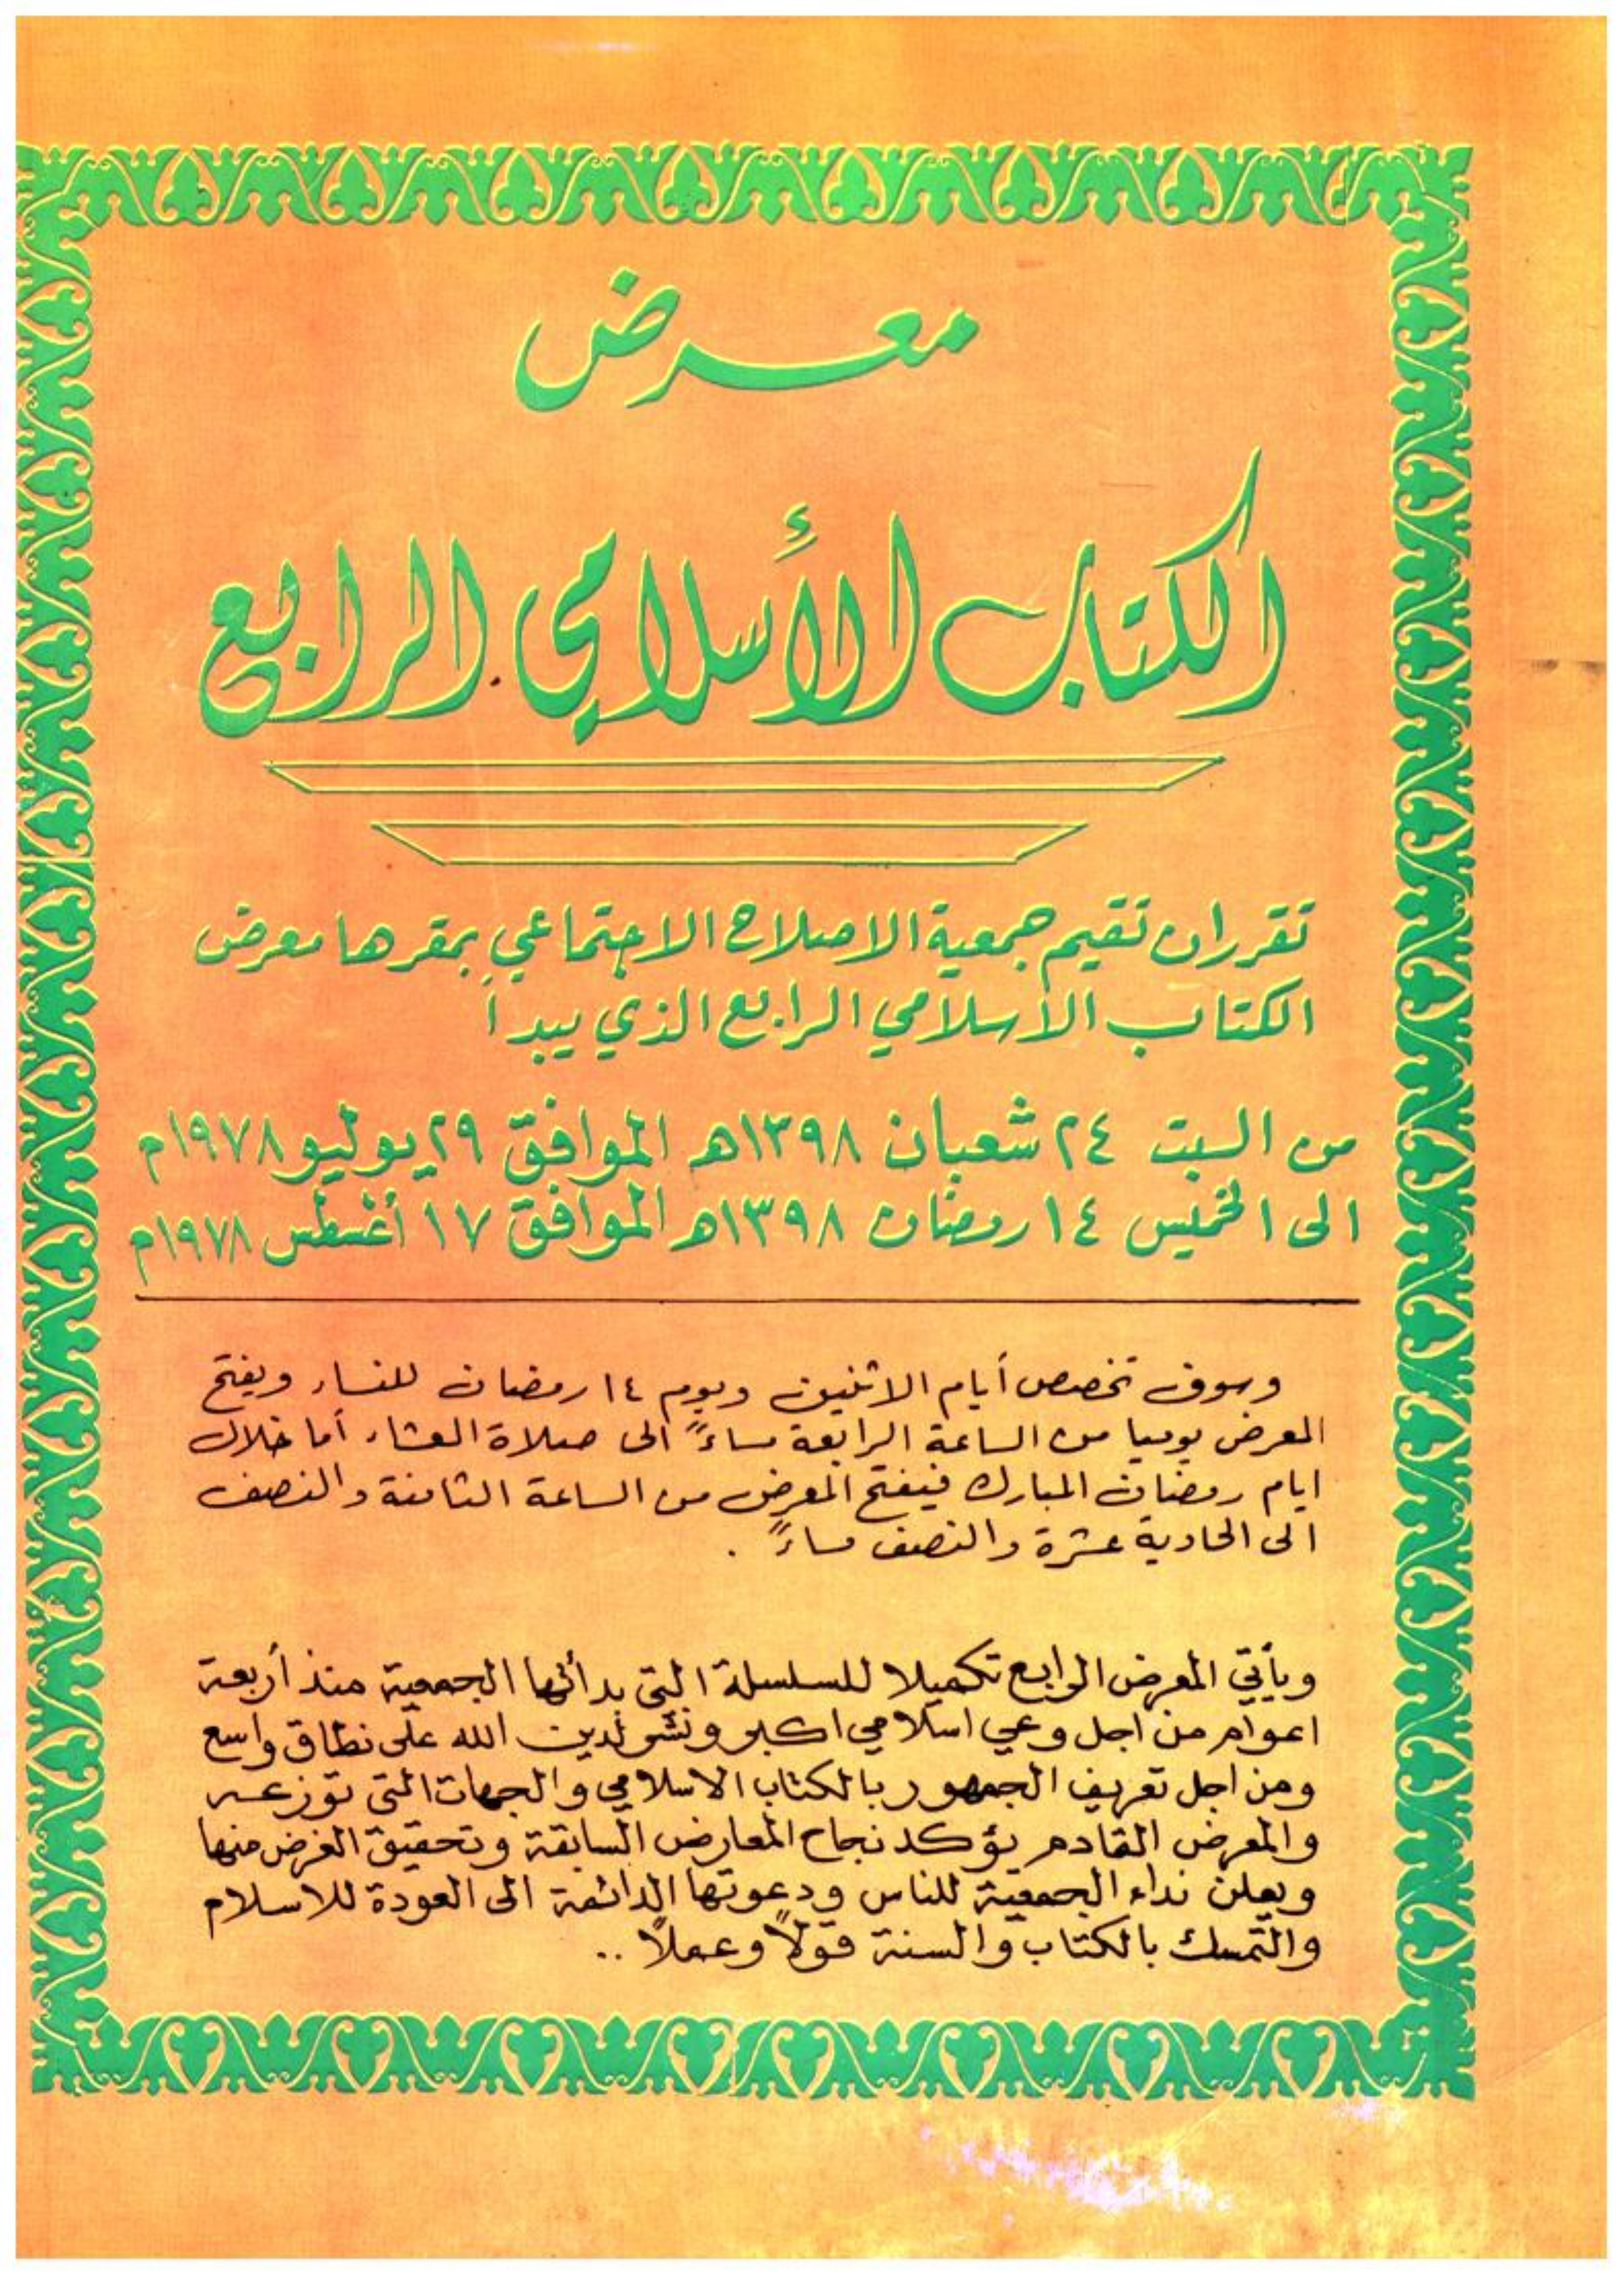 معرض
الكتاب الأسلامي الرابع
تقرر ان تقيم جمعية الاصلاح الاجتماعي بمقرها معرض
الكتاب الأسلامي الرابع الذي يبدأ
من السبت ٢٤ شعبان ١٣٩٨هـ الموافق ٢٩ يوليو ١٩٧٨م
الى الخميس ١٤ رمضان ١٣٩٨هـ الموافق ١٧ أغسطس ١٩٧٨م
وسوف تخصص أيام الاثنين ويوم ١٤ رمضان للنساء ويفتح
المعرض يوميا من الساعة الرابعة مساءً الى صلاة العشاء أما خلال
ايام رمضان المبارك فيفتح المعرض من الساعة الثامنة والنصف
الى الحادية عشرة والنصف مساءً .
ويأتي المعرض الرابع تكميلا للسلسلة التي بدأتها الجمعية منذ أربعة
اعوام من اجل وعي اسلامي اكبر ونشر لدين الله على نطاق واسع
ومن اجل تعريف الجمهور بالكتاب الاسلامي والجهات التي توزعه
والمعرض القادم يؤكد نجاح المعارض السابقة وتحقيق الغرض منها
ويعلن نداء الجمعية للناس ودعوتها الدائمة الى العودة للاسلام
والتمسك بالكتاب والسنة قولاً وعملاً ..